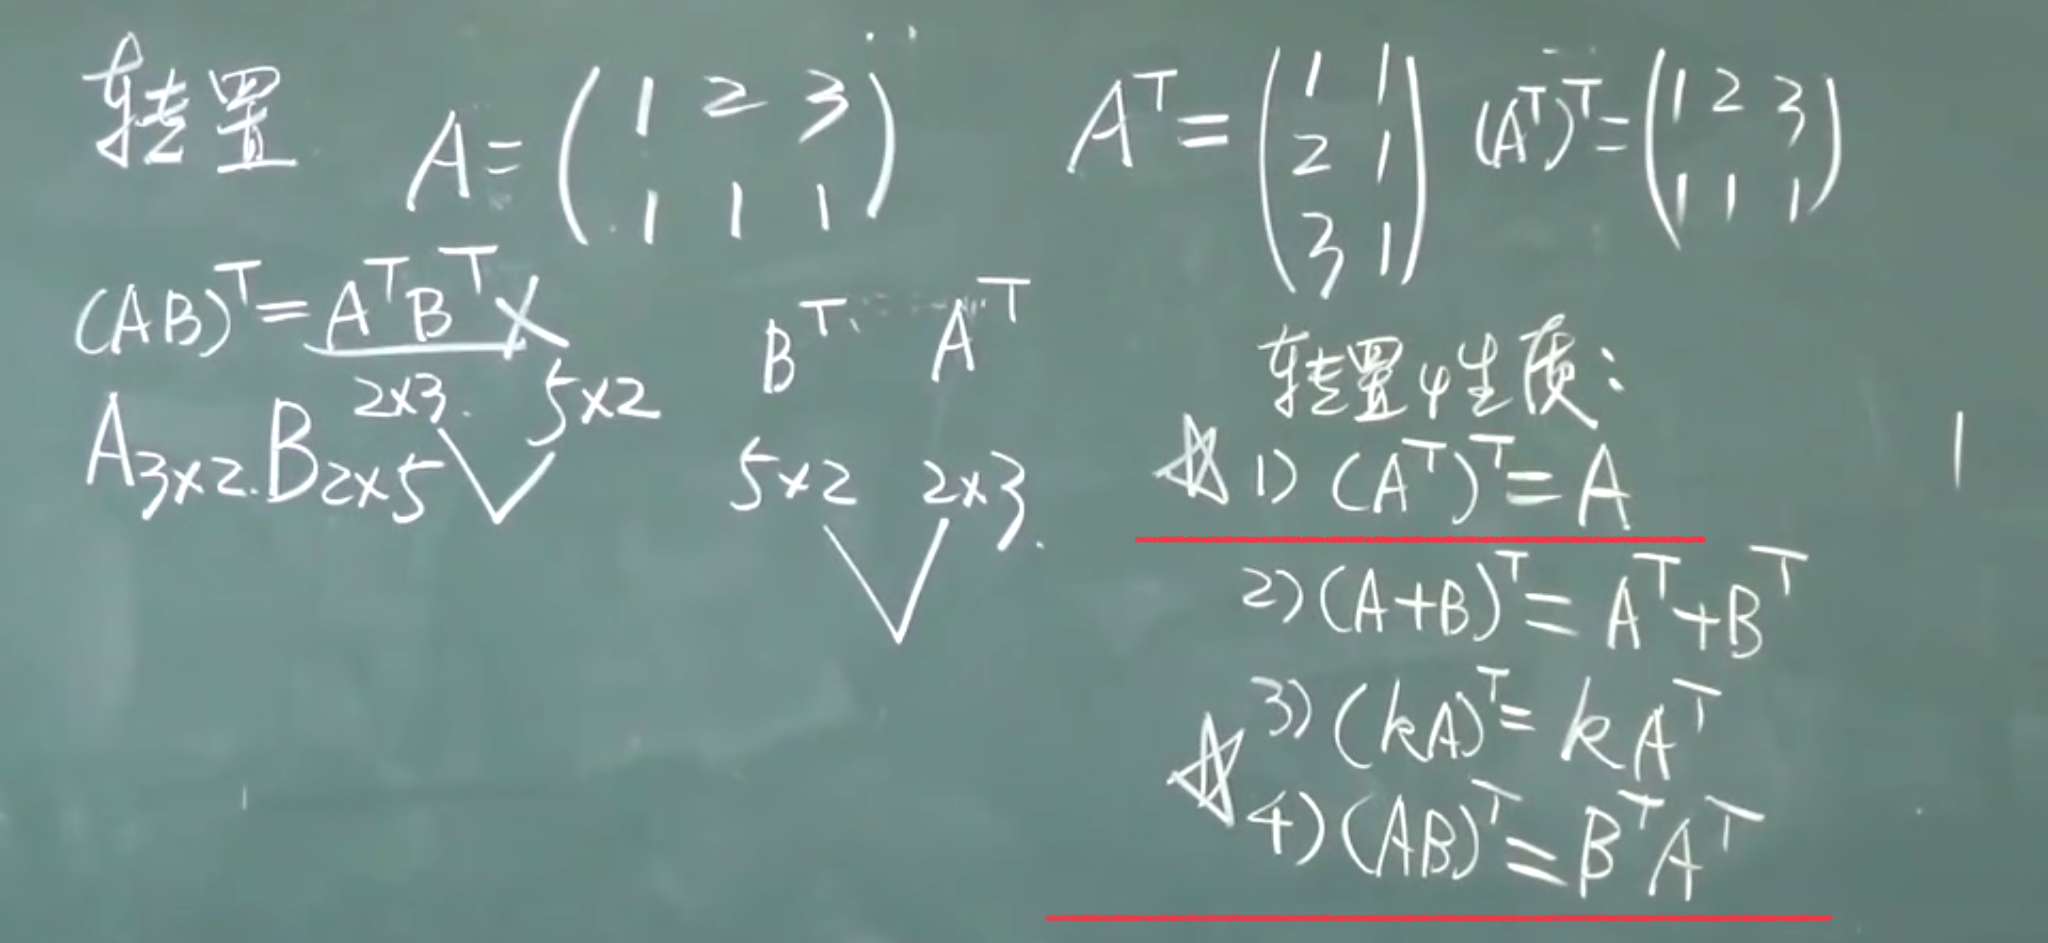 转置 A = ( 1 2 3
1 1 1 )
A^T = ( 1 1
2 1
3 1 )
(A^T)^T = ( 1 2 3
1 1 1 )
(AB)^T = A^T B^T ×
2×3. 5×2
A3×2. B2×5
B^T A^T
5×2 2×3.
转置性质:
☆ 1) (A^T)^T = A
2) (A+B)^T = A^T + B^T
3) (kA)^T = kA^T
☆ 4) (AB)^T = B^T A^T